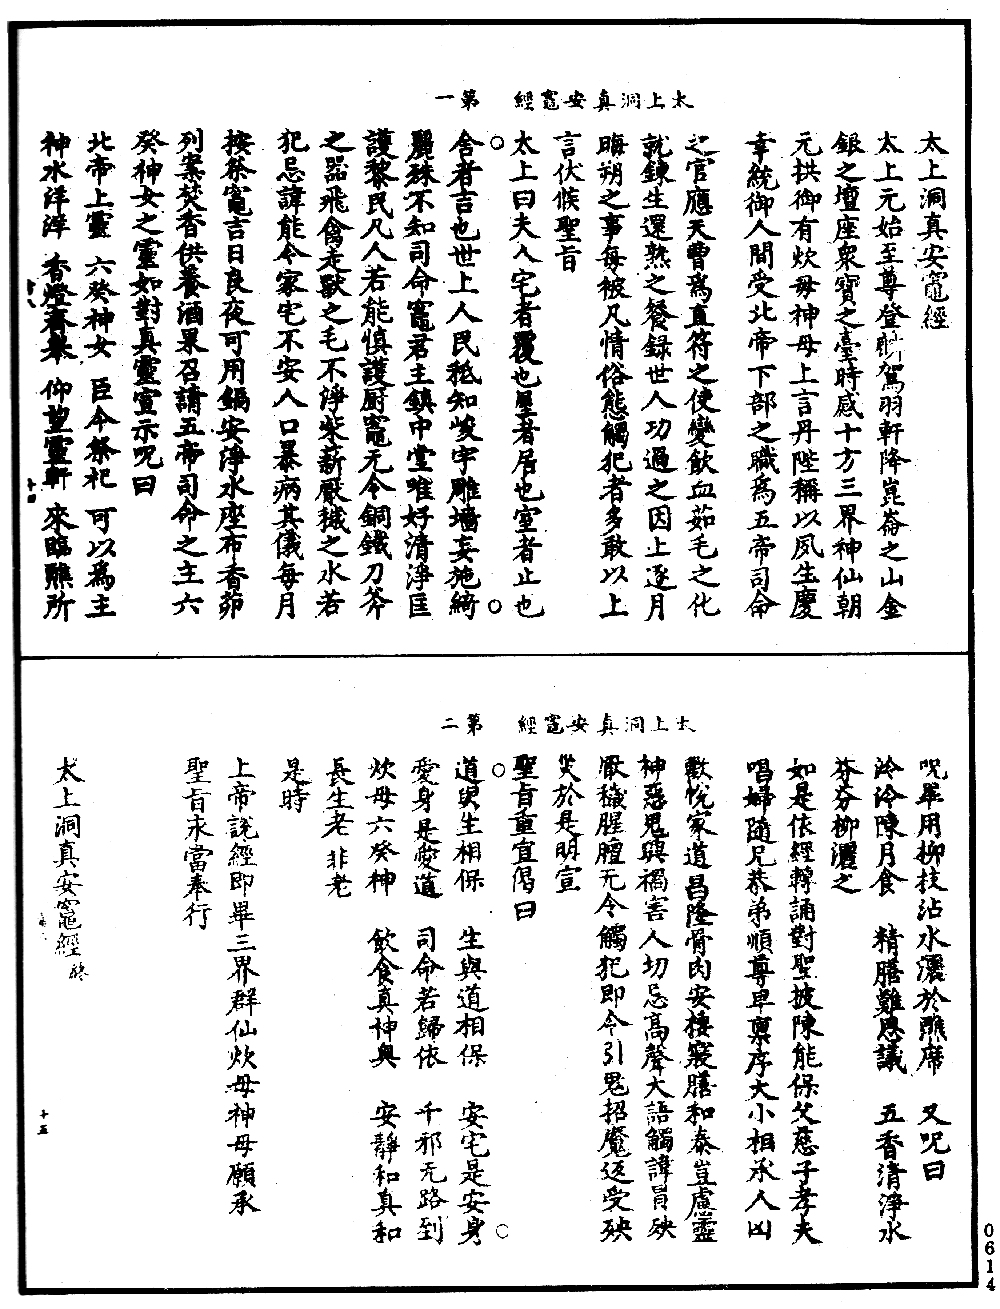 太上洞真安竈經　第一
太上洞真安竈經
太上元始至尊登
駕羽軒降崑崙之山金
銀之壇座衆寶之臺時感十方三界神仙朝
元拱御有炊母神母上言丹陛稱以夙生慶
幸統御人間受北帝下部之職為五帝司命
之官應天曹為直符之使變飲血茹毛之化
就鍊生還熟之餐錄世人功過之因上逐月
晦朔之事每被凡情俗態觸犯者多敢以上
言伏候聖旨
太上曰夫人宅者覆也屋者居也室者止也
舍者吉也世上人民秪知峻宇雕墻妄施綺
麗殊不知司命竈君主鎮中堂唯好清淨匡
護黎民凡人若能慎護厨竈无令銅鐵刀斧
之器飛禽走獸之毛不淨柴薪厭穢之水若
犯忌諱能令家宅不安人口暴病其儀每月
按祭竈吉日良夜可用鍋安淨水座布香茆
列案焚香供養酒果召請五帝司命之主六
癸神女之靈如對真靈宣示呪曰
北帝上靈　六癸神女　臣今祭祀　可以為主
神水洋洋　香燈　仰望靈軒　來臨醮所
太上洞真安竈經　第二
呪畢用柳枝沾水灑於醮席　又呪曰
泠泠陳月食　精膳難思議　五香清淨水
芬芬柳灑之
如是依經轉誦對聖披陳能保父慈子孝夫
唱婦隨兄恭弟順尊卑禀序大小相承人凶
歡悅家道昌隆骨肉安棲寢膳和泰豈慮靈
神惡鬼興禍害人切忌高聲大語觸諱冐殃
厭穢腥膻无令觸犯即令引鬼招魔返受殃
災於是明宣
聖旨重宣偈曰
道與生相保　生與道相保　安宅是安身
愛身是愛道　司命若歸依　千邪无路到
炊母六癸神　飲食真神奧　安靜和真和
長生老非老
是時
上帝說經即畢三界群仙炊母神母願承
聖旨永當奉行
太上洞真安竈經終
十五
0614